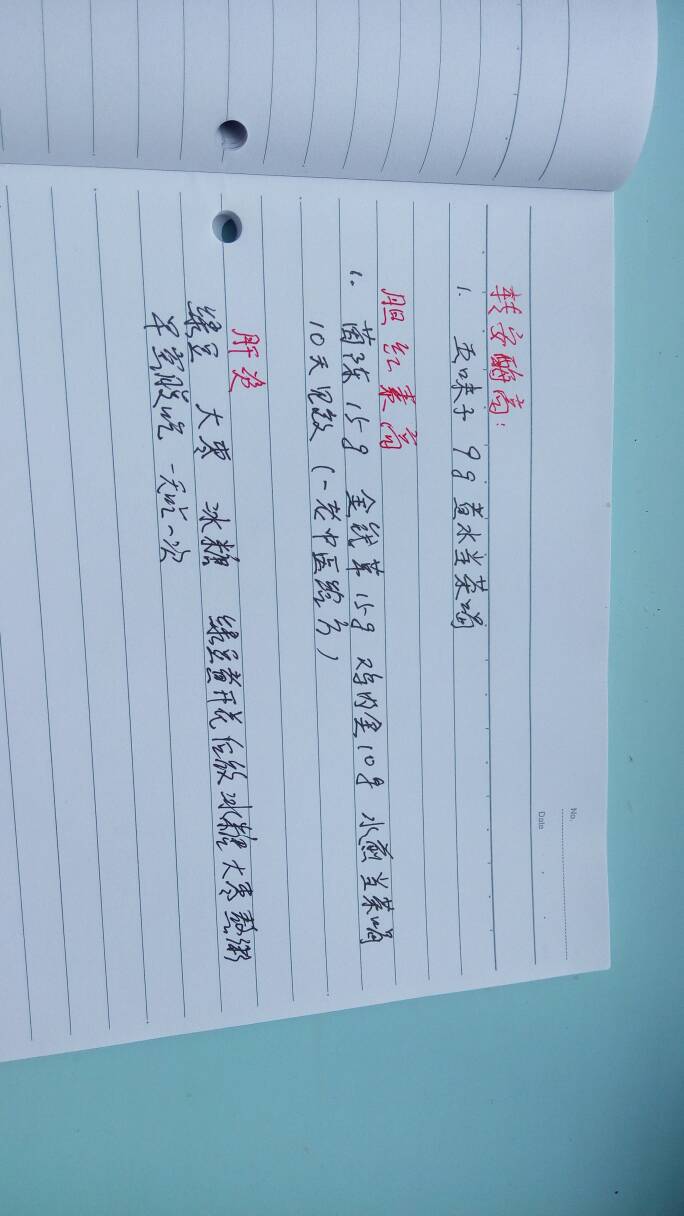 No.
Date
转安酶高:
1. 五味子 9g 煮水当茶喝
胆红素高
1. 茵陈 15g 金钱草 15g 鸡内金10g 水煎当茶喝
10天见效 (一老中医验方)
肝炎
绿豆 大枣 冰糖 绿豆煮开花后放冰糖大枣熬粥
早空腹吃 一天吃一次